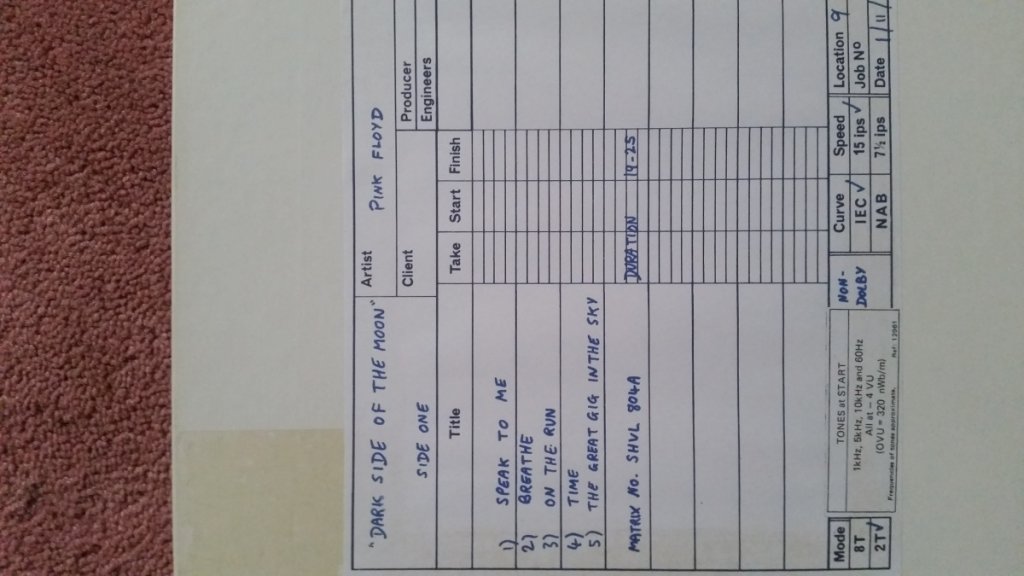 "DARK SIDE OF THE MOON" Artist PINK FLOYD
SIDE ONE Client Producer
Engineers
Title Take Start Finish
1) SPEAK TO ME
2) BREATHE
3) ON THE RUN
4) TIME
5) THE GREAT GIG IN THE SKY
MATRIX No. SHVL 804A DURATION 19-25
Mode TONES at START NON- Curve Speed Location 9
8T 1kHz, 5kHz, 10kHz and 60Hz DOLBY IEC ✓ 15 ips ✓ Job Nº
2T ✓ All at – 4 VU NAB 7½ ips Date 1/11/
(OVU = 320 nWb/m)
Frequencies of tones approximate. Ref: 12961